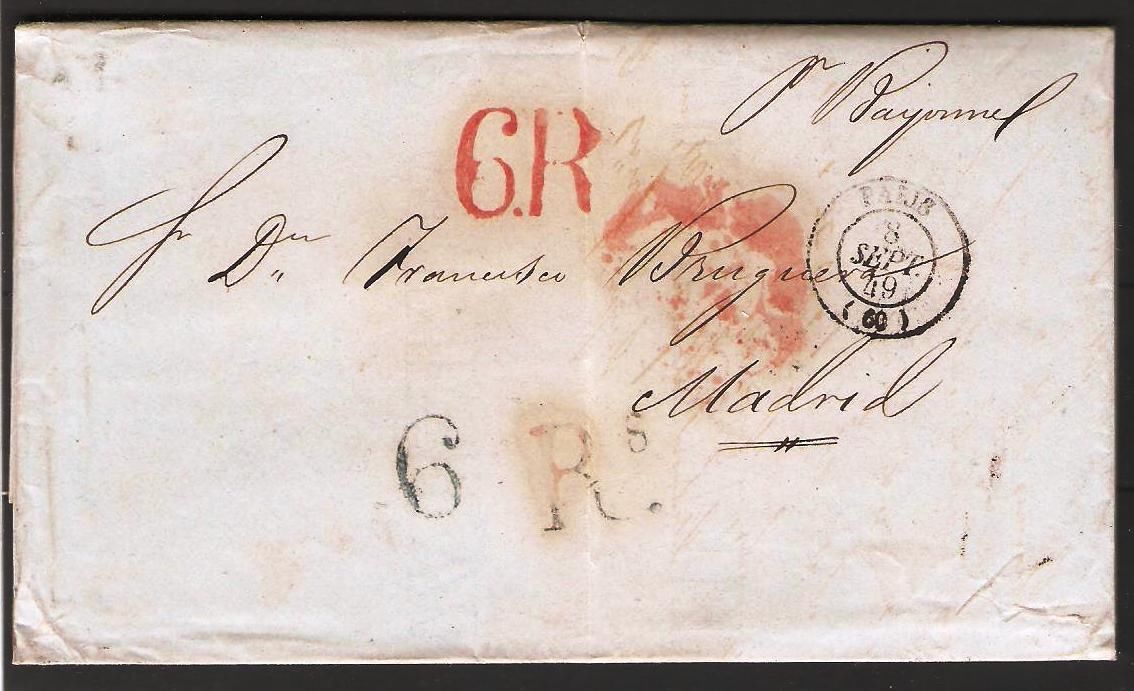 Pr Bayonne
6.R
PARIS
8
SEPT.
49
(60)
Sr Dn Francisco Bruguera
Madrid
6 Rs.